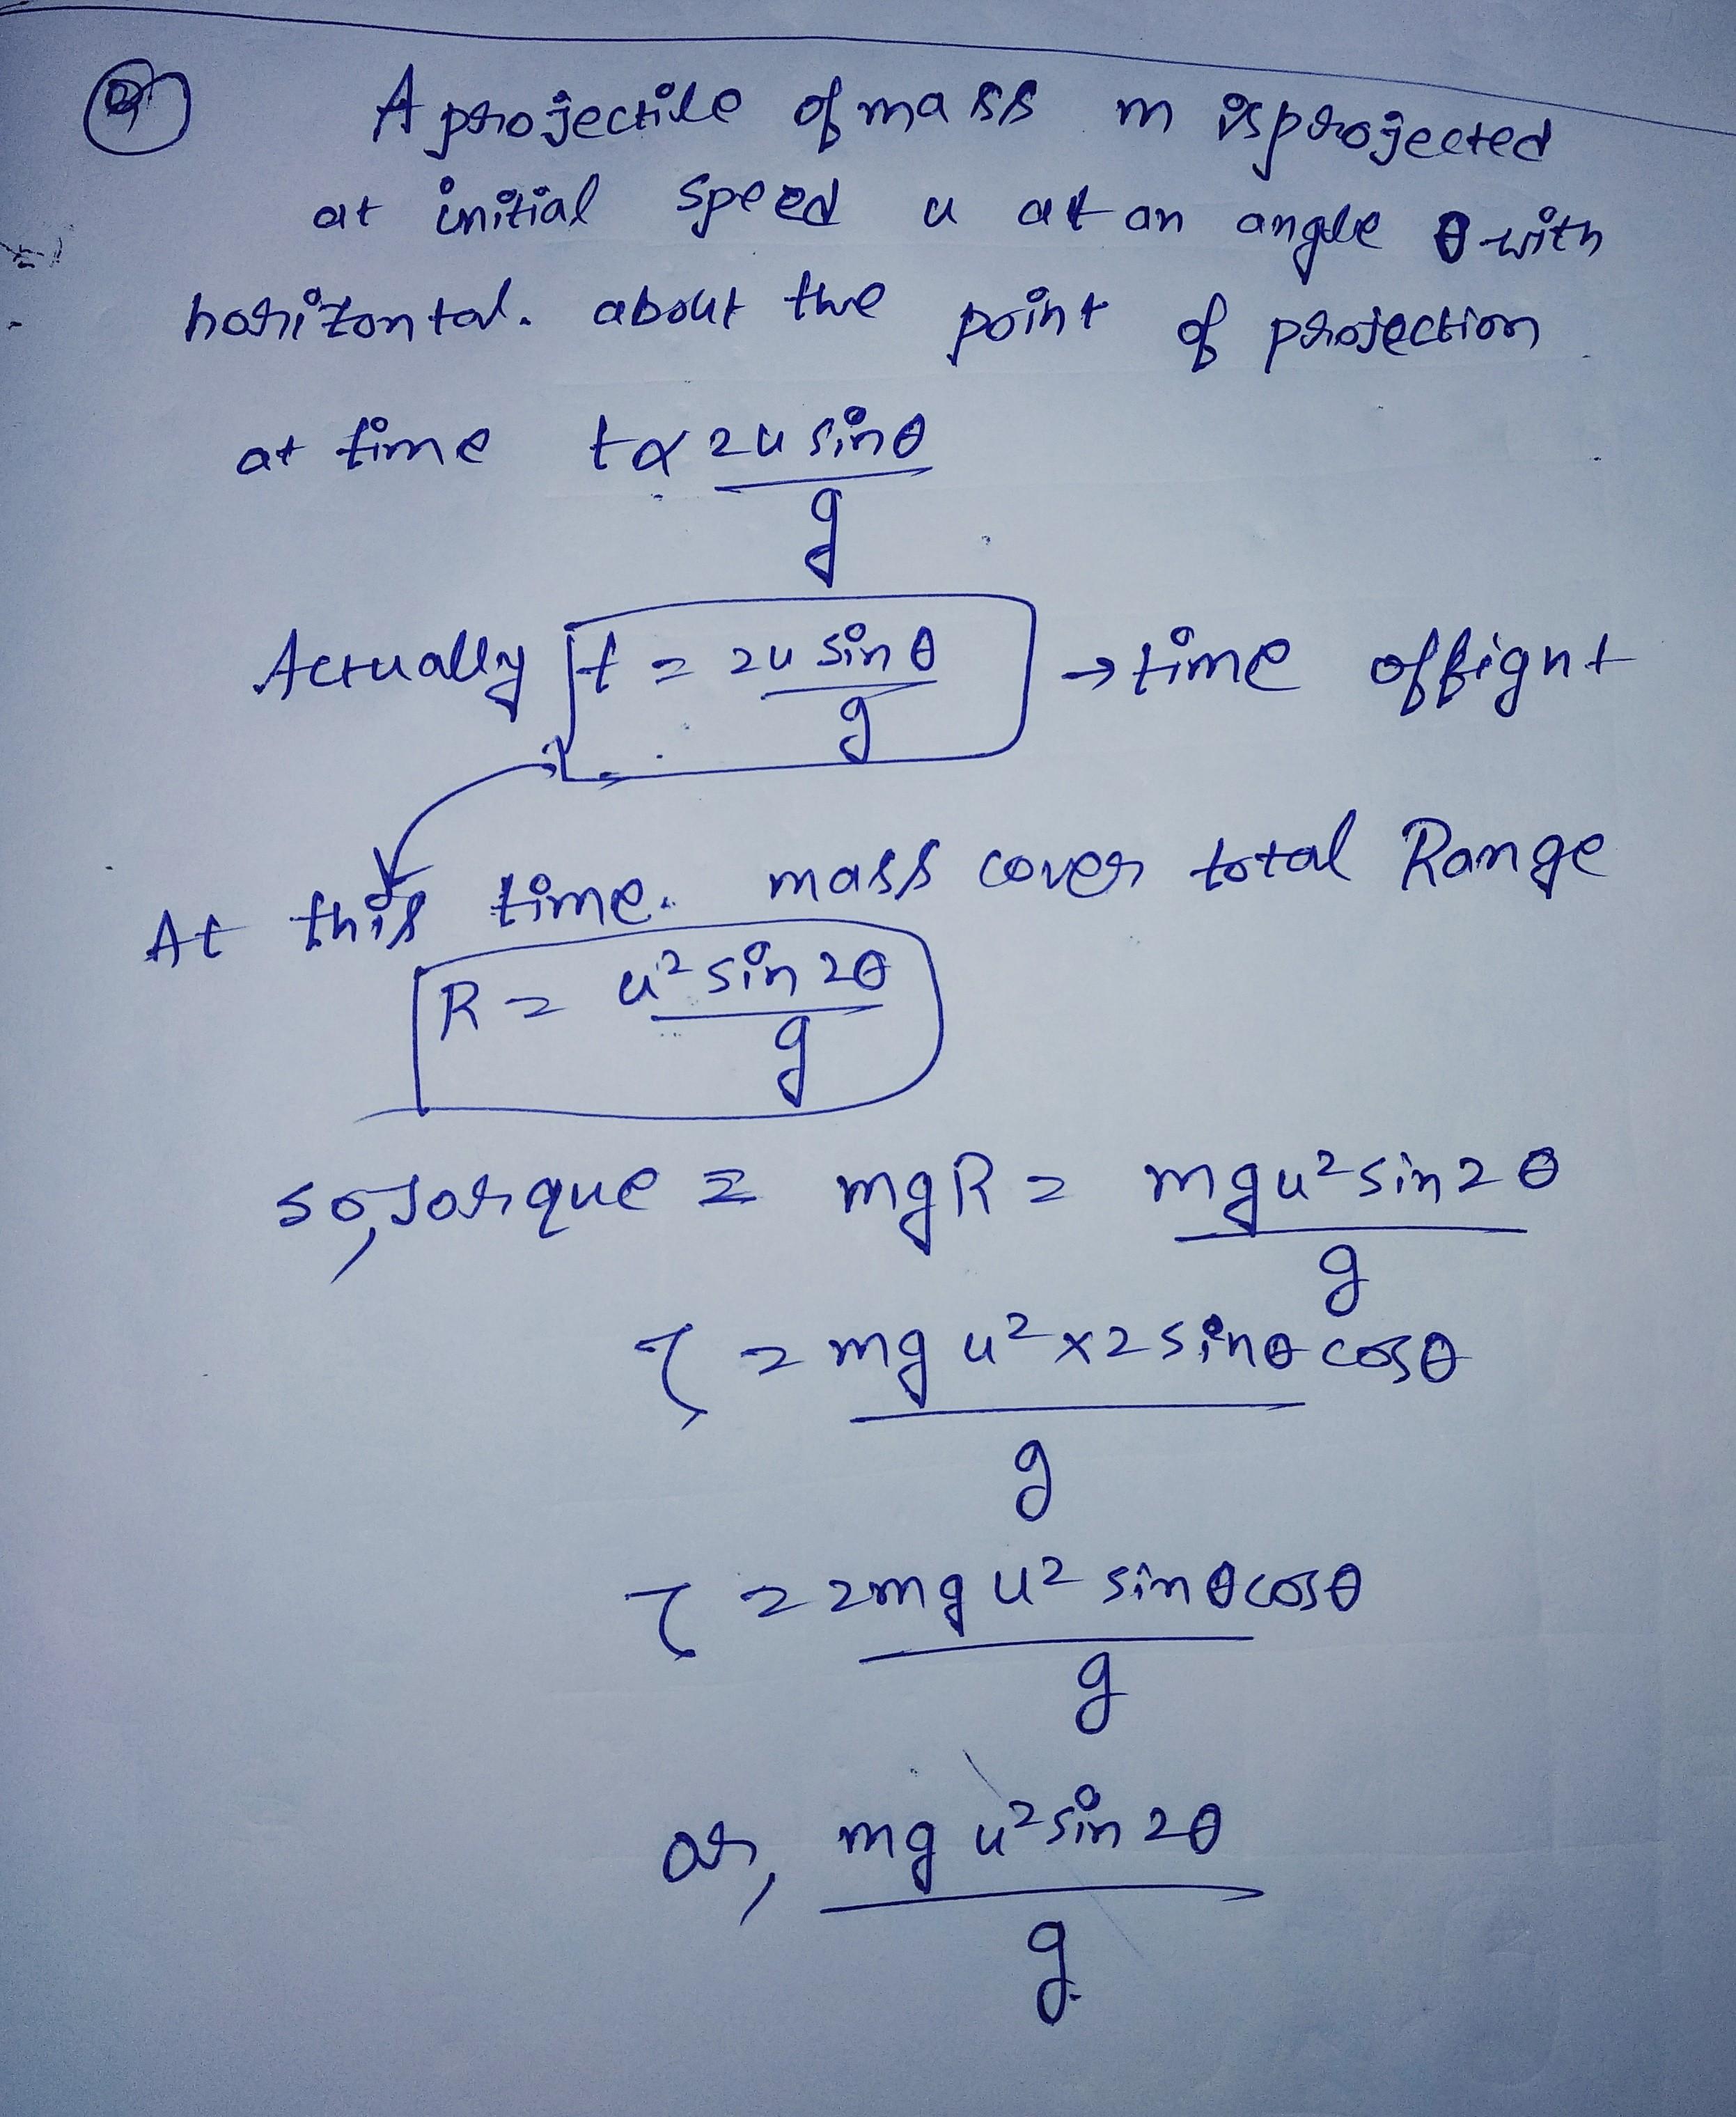 A projectile of mass m is projected
at initial speed u at an angle θ with
horizontal. about the point of projection
at time t α 2u sinθ
g
Actually t = 2u sin θ → time offignt
g
At this time. mass cover total Range
R = u² sin 2θ
g
so, Torque = mgR = mgu² sin2θ
g
τ = mg u² × 2 sinθ cosθ
g
τ = 2mg u² sinθcosθ
g
or, mg u² sin 2θ
g